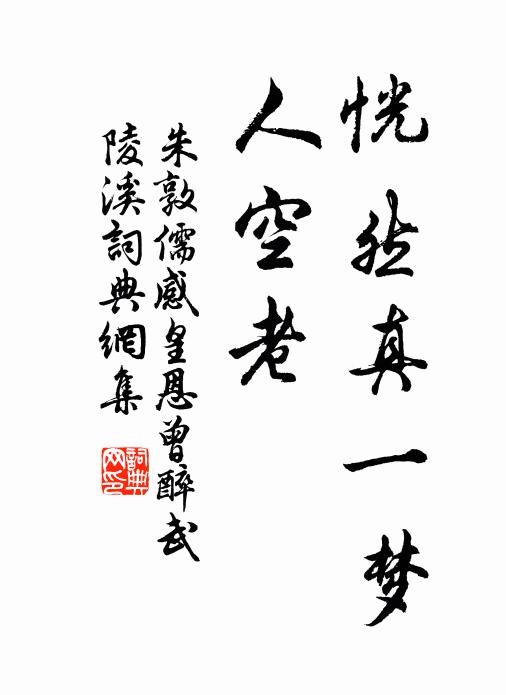 恍然真一梦
人空老
朱敦儒感皇恩曾醉武
陵溪詞典網集
詞典
网印